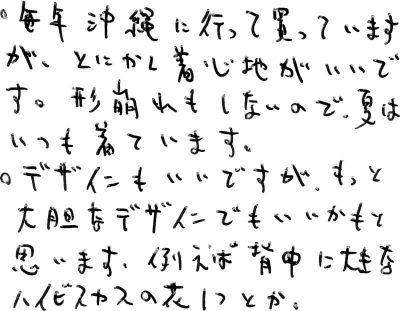 。毎年沖縄に行って買っています
が、とにかく着心地がいいで
す。形崩れもしないので、夏は
いつも着ています。
。デザインもいいですが、もっと
大胆なデザインでもいいかもと
思います。例えば背中に大きな
ハイビスカスの花1つとか。